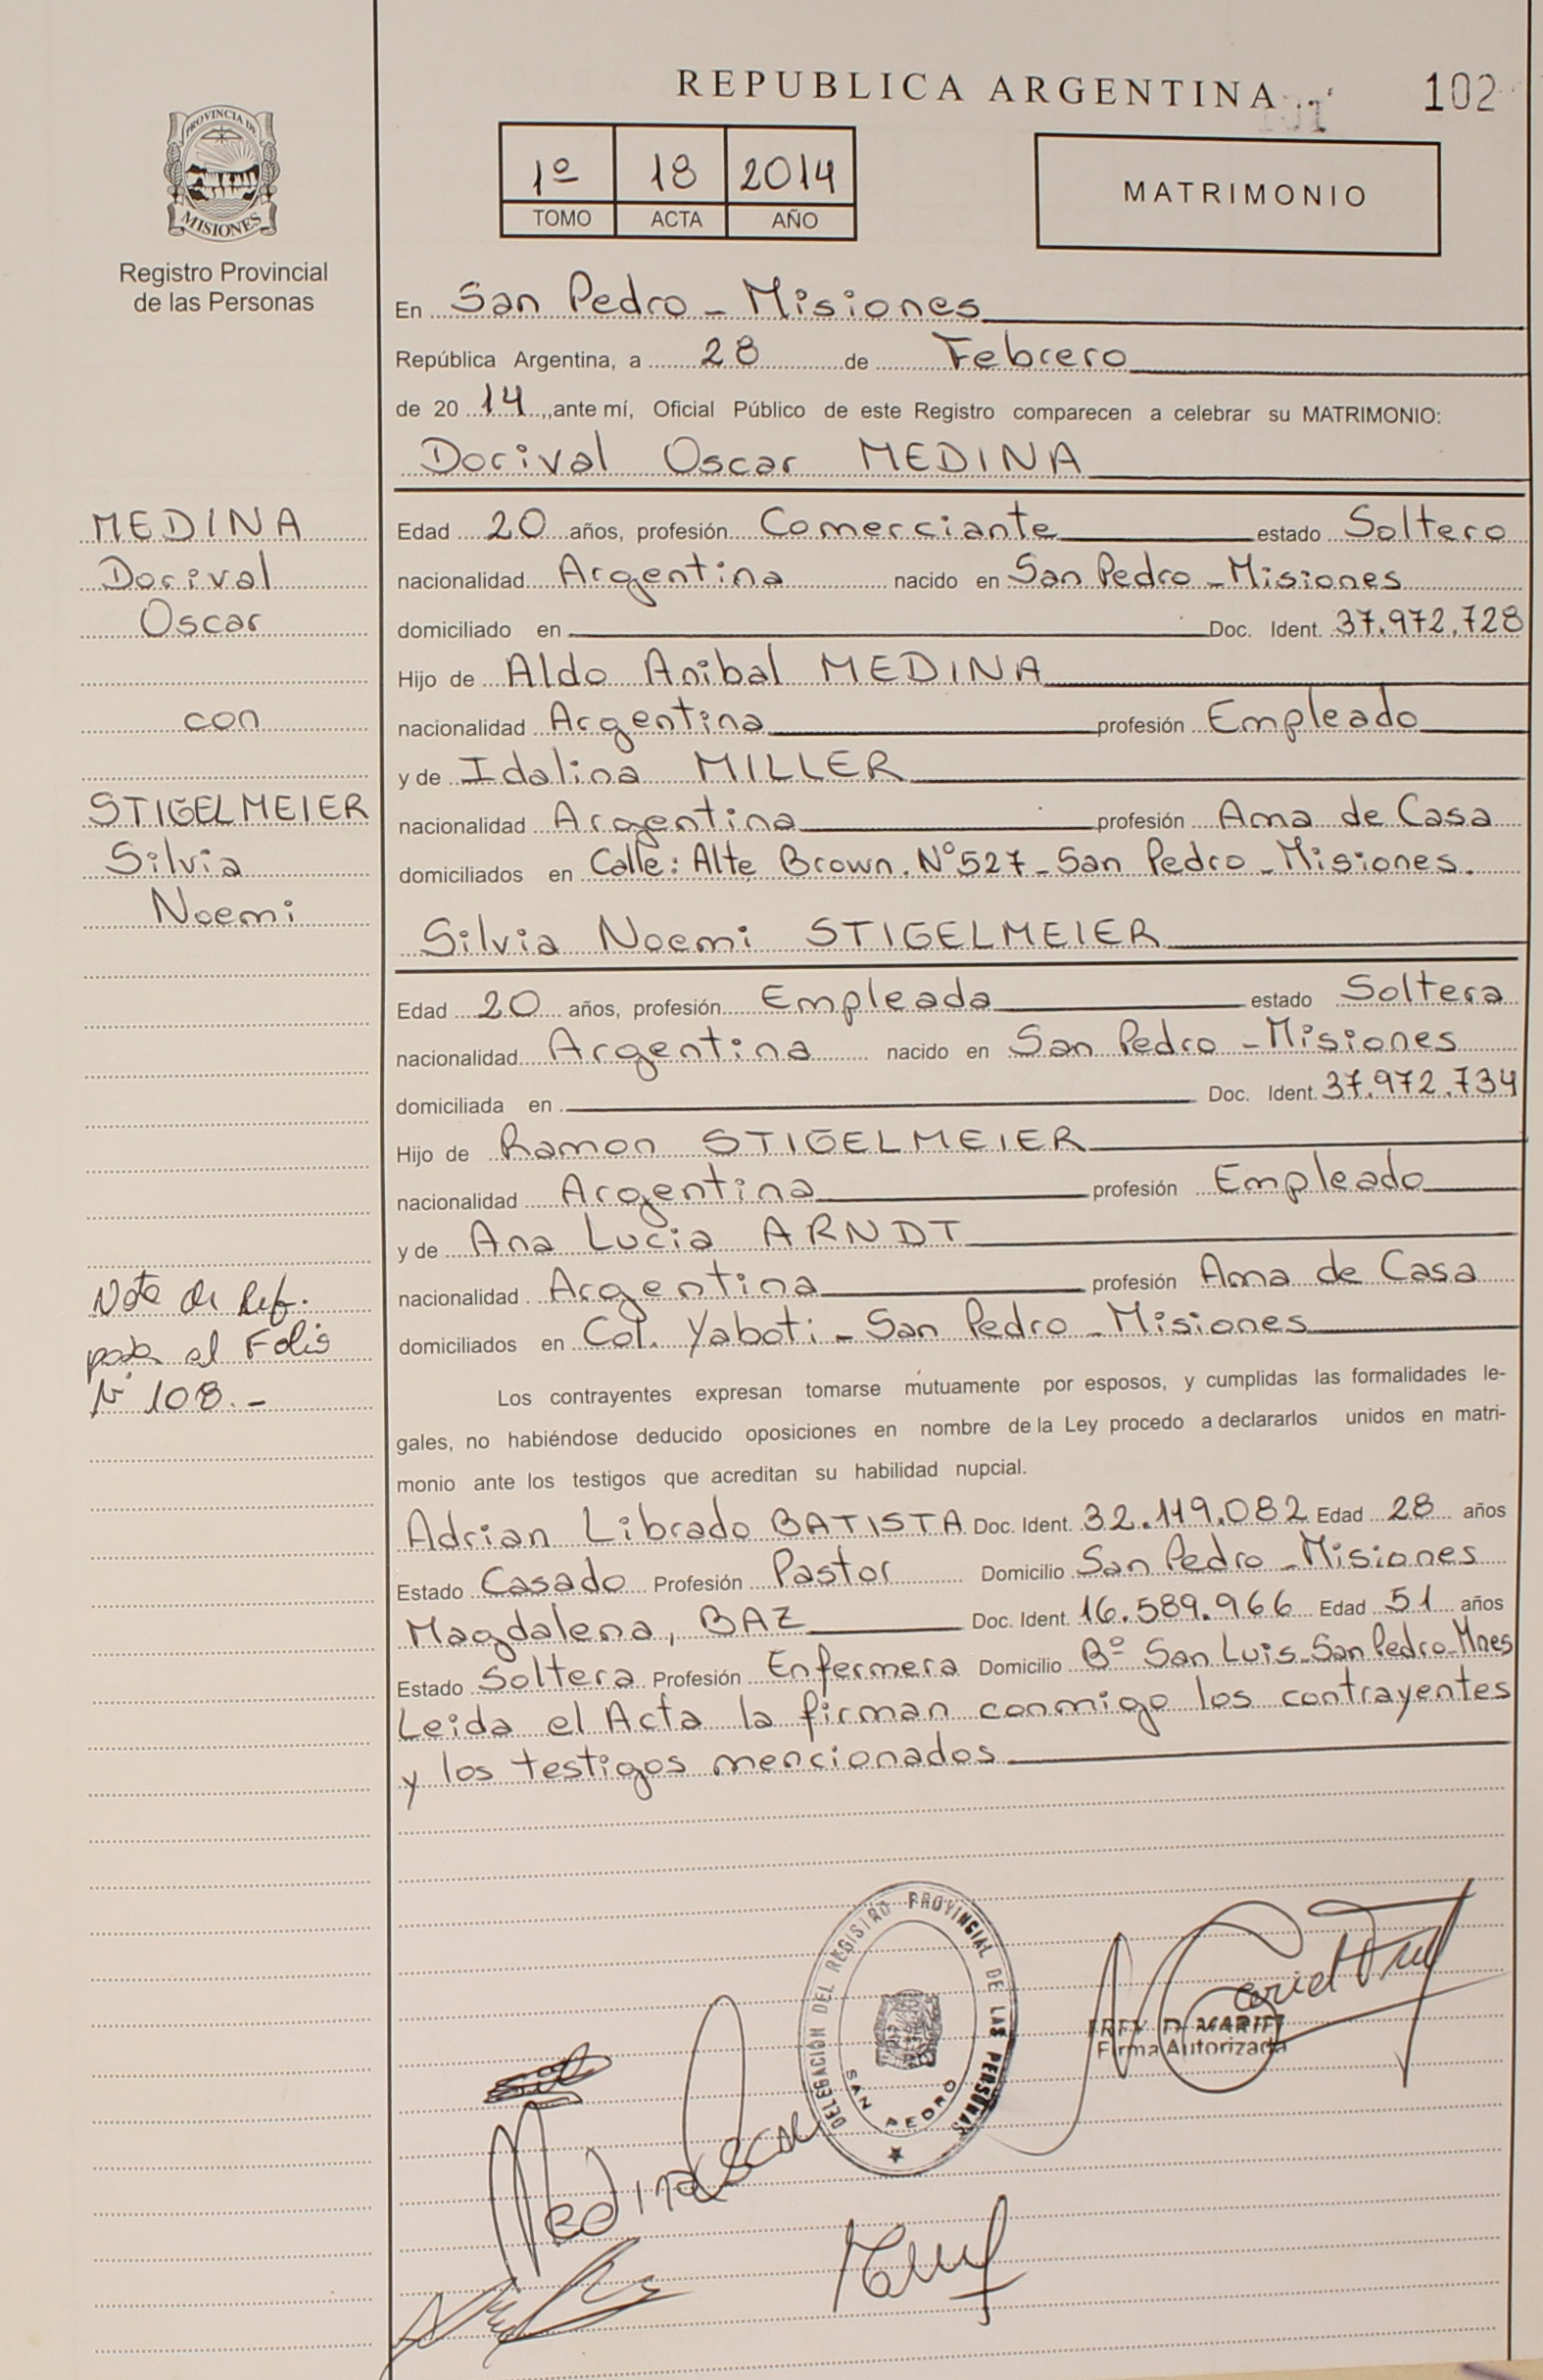 REPUBLICA ARGENTINA
101
102
PROVINCIA DE
MISIONES
Registro Provincial
de las Personas
1º 18 2014
TOMO ACTA AÑO
MATRIMONIO
En San Pedro - Misiones
República Argentina, a 28 de Febrero
de 20 14 ,,ante mí, Oficial Público de este Registro comparecen a celebrar su MATRIMONIO:
Dorival Oscar MEDINA
MEDINA
Dorival
Oscar
con
STIGELMEIER
Silvia
Noemi
Edad 20 años, profesión Comerciante estado Soltero
nacionalidad Argentina nacido en San Pedro - Misiones
domiciliado en Doc. Ident. 37.972.728
Hijo de Aldo Anibal MEDINA
nacionalidad Argentina profesión Empleado
y de Idalina MILLER
nacionalidad Argentina profesión Ama de Casa
domiciliados en Calle: Alte Brown. Nº 527 - San Pedro - Misiones.
Silvia Noemi STIGELMEIER
Edad 20 años, profesión Empleada estado Soltera
nacionalidad Argentina nacido en San Pedro - Misiones
domiciliada en Doc. Ident. 37.972.734
Hijo de Ramon STIGELMEIER
nacionalidad Argentina profesión Empleado
y de Ana Lucia ARNDT
nacionalidad Argentina profesión Ama de Casa
domiciliados en Col. Yaboti - San Pedro - Misiones
Nota de Ref.
pasa al Folio
Nº 108.-
Los contrayentes expresan tomarse mutuamente por esposos, y cumplidas las formalidades le-
gales, no habiéndose deducido oposiciones en nombre de la Ley procedo a declararlos unidos en matri-
monio ante los testigos que acreditan su habilidad nupcial.
Adrian Librado BATISTA Doc. Ident. 32.119.082 Edad 28 años
Estado Casado Profesión Pastor Domicilio San Pedro - Misiones
Magdalena, BAZ Doc. Ident. 16.589.966 Edad 51 años
Estado Soltera Profesión Enfermera Domicilio Bº San Luis - San Pedro - Mnes
Leida el Acta la firman conmigo los contrayentes
y los testigos mencionados
DELEGACIÓN DEL REGISTRO PROVINCIAL DE LAS PERSONAS
SAN PEDRO
FREY D. MARIEL
Firma Autorizada
Medina Oscar